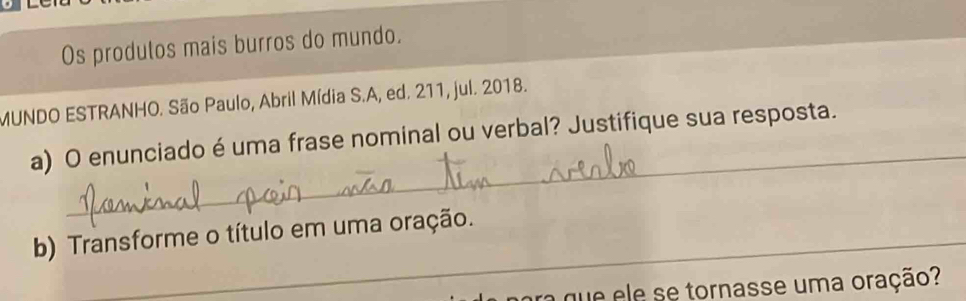 Os produtos mais burros do mundo.
MUNDO ESTRANHO. São Paulo, Abril Mídia S.A, ed. 211, jul. 2018.
a) O enunciado é uma frase nominal ou verbal? Justifique sua resposta.
Nominal pois não tem verbo
b) Transforme o título em uma oração.
que ele se tornasse uma oração?